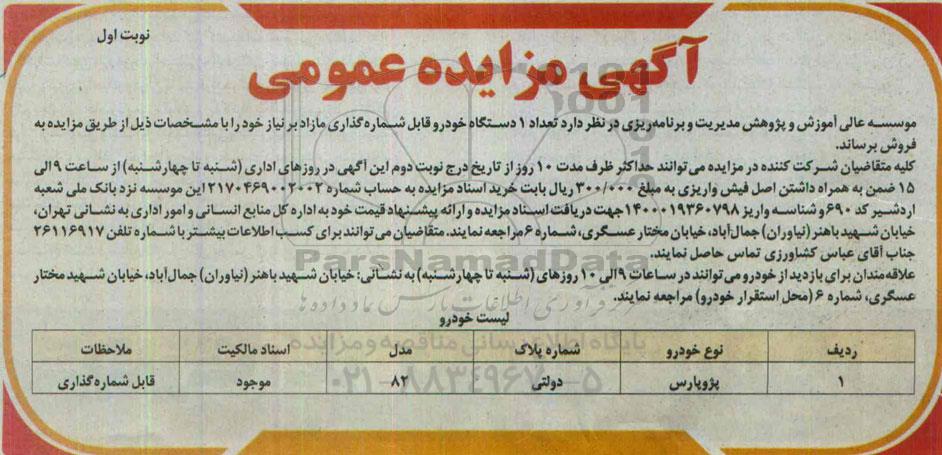 نوبت اول
آگهی مزایده عمومی
موسسه عالی آموزش و پژوهش مدیریت و برنامه‌ریزی در نظر دارد تعداد ۱ دستگاه خودرو قابل شماره‌گذاری مازاد بر نیاز خود را با مشخصات ذیل از طریق مزایده به
فروش برساند.
کلیه متقاضیان شرکت کننده در مزایده می‌توانند حداکثر ظرف مدت ۱۰ روز از تاریخ درج نوبت دوم این آگهی در روزهای اداری (شنبه تا چهارشنبه) از ساعت ۹ الی
۱۵ ضمن به همراه داشتن اصل فیش واریزی به مبلغ ۳۰۰/۰۰۰ ریال بابت خرید اسناد مزایده به حساب شماره ۲۱۷۰۴۶۹۰۰۲۰۰۲ این موسسه نزد بانک ملی شعبه
اردشیر کد ۶۹۰ و شناسه واریز ۱۴۰۰۰۱۹۳۶۰۷۹۸ جهت دریافت اسناد مزایده و ارائه پیشنهاد قیمت خود به اداره کل منابع انسانی و امور اداری به نشانی تهران،
خیابان شهید باهنر (نیاوران) جمال‌آباد، خیابان مختار عسگری، شماره ۶ مراجعه نمایند. متقاضیان می‌توانند برای کسب اطلاعات بیشتر با شماره تلفن ۲۶۱۱۶۹۱۷
جناب آقای عباس کشاورزی تماس حاصل نمایند.
علاقه‌مندان برای بازدید از خودرو می‌توانند در ساعات ۹ الی ۱۰ روزهای (شنبه تا چهارشنبه) به نشانی: خیابان شهید باهنر (نیاوران) جمال‌آباد، خیابان شهید مختار
عسگری، شماره ۶ (محل استقرار خودرو) مراجعه نمایند.
ParsNamadData
مرکز فرآوری اطلاعات پارس نماد داده ها
لیست خودرو
پایگاه اطلاع رسانی مناقصه و مزایده
ردیف نوع خودرو شماره پلاک مدل اسناد مالکیت ملاحظات
۱ پژوپارس دولتی ۸۲ موجود قابل شماره‌گذاری
۰۲۱-۸۸۳۴۹۶۷۰-۵